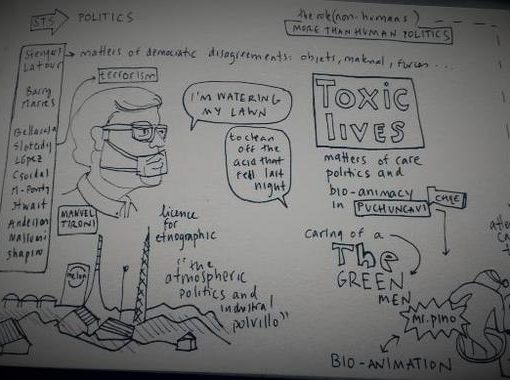 STS
POLITICS
the role (non-humans)
MORE THAN HUMAN POLITICS
Stengers
Latour
Barry
Marres
Bellacasa
Sloterdij
López
Csordas
M-Ponty
Stwart
Anderson
shapin
matters of democratic disagreements: objets, material, forces ...
terrorism
I'M WATERING
MY LAWN
to clean
off the
acid that
fell last
night
MANUEL
TIRONI
licence
for
etnographic
"the
atmospheric
politics and
industrial
polvillo"
Toxic
lives
matters of care
politics and
bio-animacy
in PUCHUNCAVI
CHILE
caring of a
The
GREEN
MEN
Mr. pino
BIO-ANIMATION